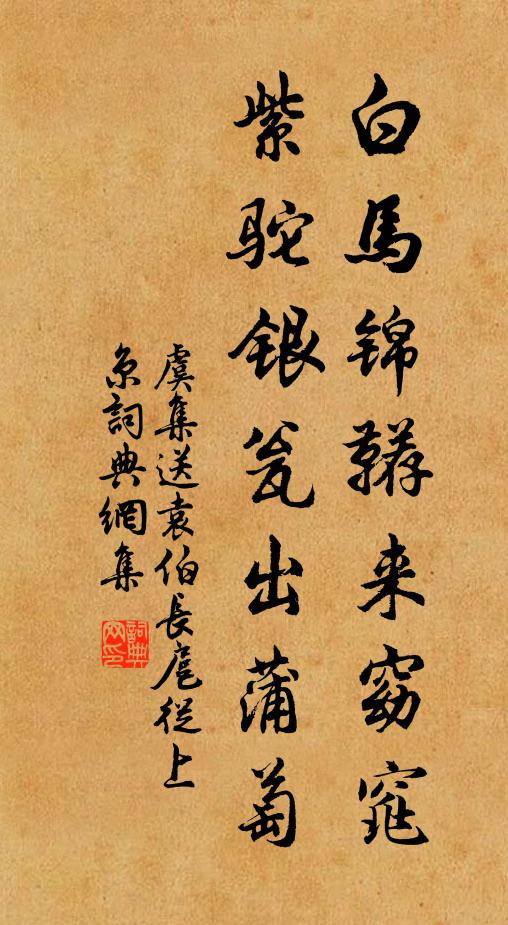 白馬錦鞯来窈窕
紫駝銀瓮出蒲萄
虞集送袁伯長扈從上
京詞典網集
詞典
网印